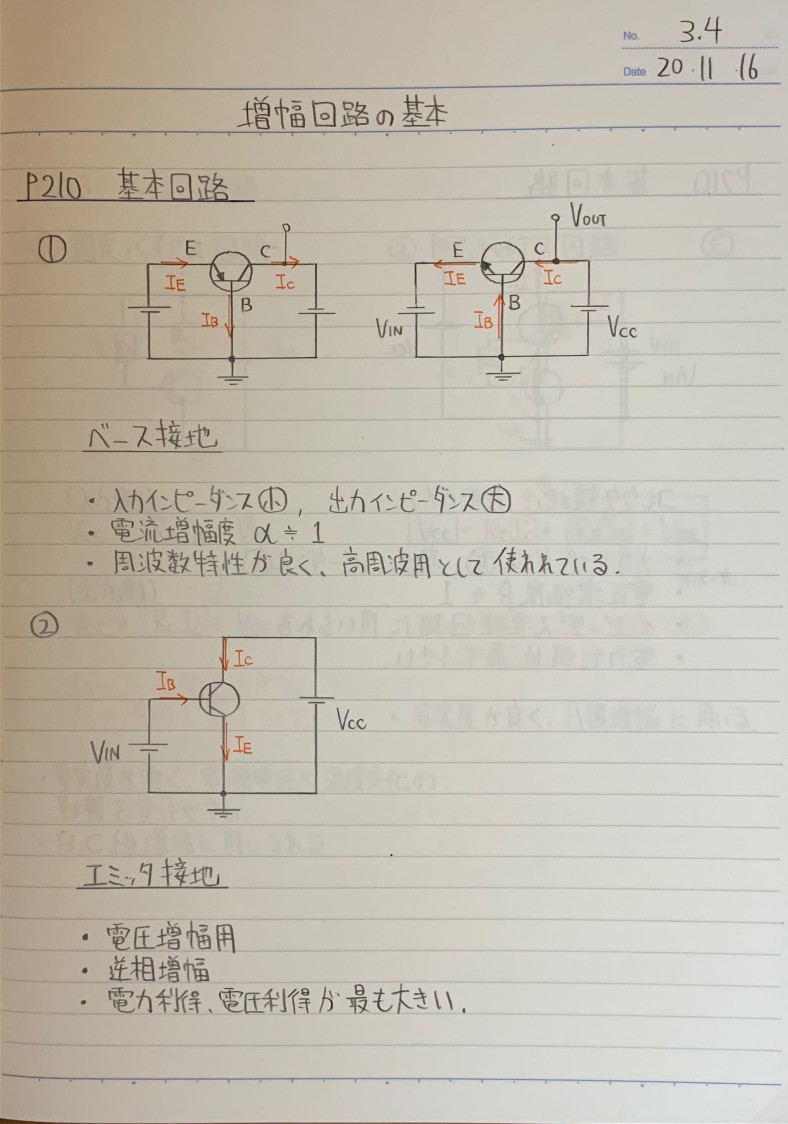 No. 3.4
Date 20・11・16
増幅回路の基本
P210 基本回路
①
E C
IE IC
B
IB
VOUT
E C
IE IC
B
IB
VIN
VCC
ベース接地
・入力インピーダンス小, 出力インピーダンス大
・電流増幅度 α≒1
・周波数特性が良く、高周波用として使われている.
②
IC
IB
VCC
IE
VIN
エミッタ接地
・電圧増幅用
・逆相増幅
・電力利得、電圧利得が最も大きい.